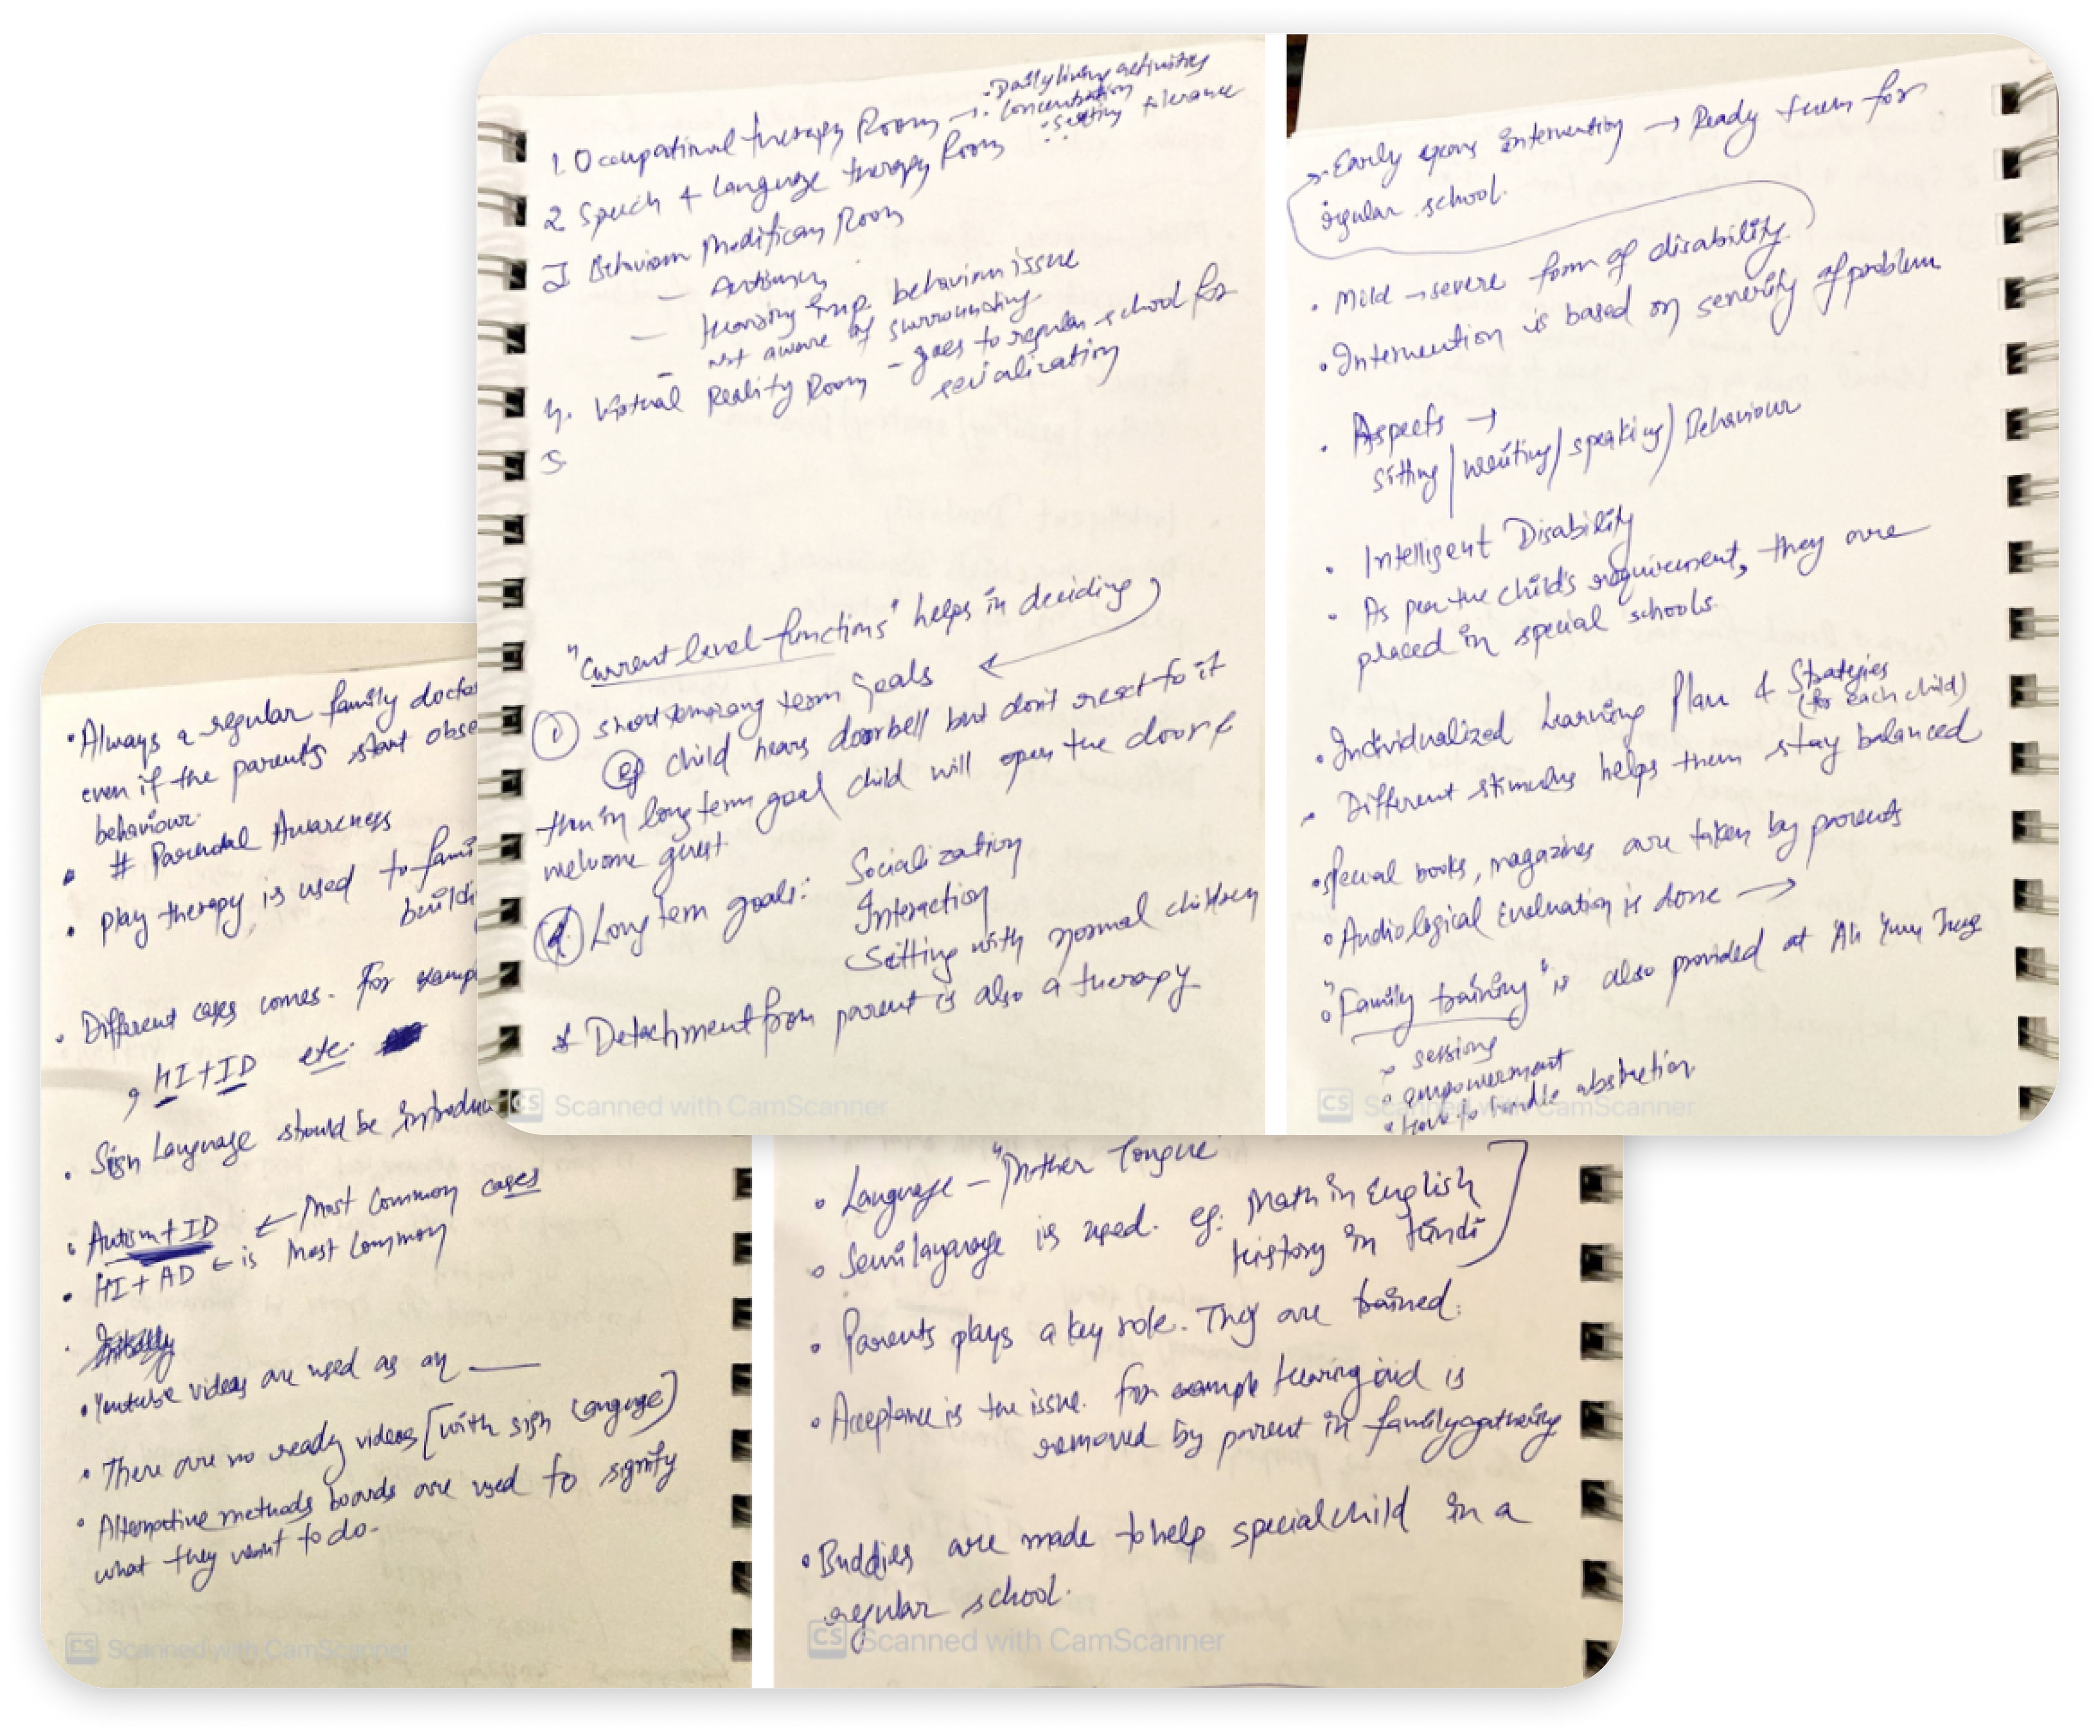 1. Occupational therapy Room → • Daily living activities
• Concentration
• Sitting tolerance
2 Speech & Language therapy Room
3 Behaviour Modification Room
— Autism
— Hearing Imp. behaviour issue
— not aware of surrounding
4. Virtual Reality Room - goes to regular school for
socialization
5
"Current level functions" helps in deciding
① short term goals
eg child hears doorbell but don't react to it
then in long term goal child will open the door &
welcome guest
Long term goals: Socialization
Interaction
Sitting with normal children
* Detachment from parent is also a therapy
CS Scanned with CamScanner
Early years intervention → Ready them for
regular school.
• Mild → severe form of disability
• Intervention is based on severity of problem
• Aspects →
Sitting/writing/speaking/Behaviour
• Intelligent Disability
• As per the child's requirement, they are
placed in special schools.
• Individualized Learning Plan & Strategies
(for each child)
• Different stimulus helps them stay balanced
• Special books, magazines are taken by parents
• Audiological Evaluation is done →
• "Family training" is also provided at
• sessions
• empowerment
• How to handle
CS Scanned with CamScanner
• Always a regular family docto
even if the parents start obse
behaviour.
• # Parental Awareness
• Play therapy is used to fami
buildi
• Different cases comes. For examp
, HI + ID etc.
• Sign Language should be introdu
• Autism + ID ← Most Common cases
• HI + AD ← is Most Common
• Initially
• Youtube videos are used as an ___
• There are no ready videos [with sign language]
• Alternative methods boards are used to signify
what they want to do.
CS Scanned with CamScanner
• Language - "Mother Tongue"
• Semi language is used. eg: Math in English
History in Hindi
• Parents plays a key role. They are trained.
• Acceptance is the issue. For example hearing aid is
removed by parent in family gathering
• Buddies are made to help special child in a
regular school.
CS Scanned with CamScanner